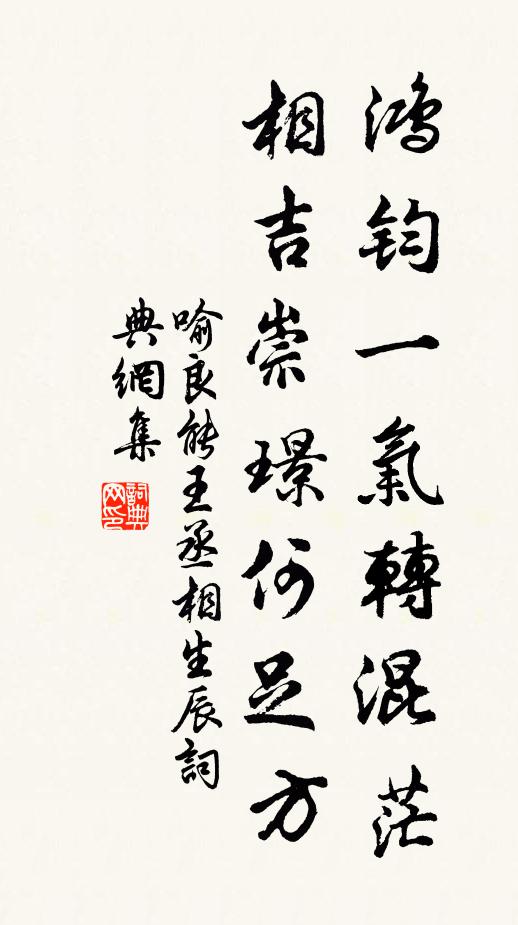 鴻鈞一氣轉混茫
相吉崇璟何足方
喻良能王丞相生辰詞
典網集
詞典網印